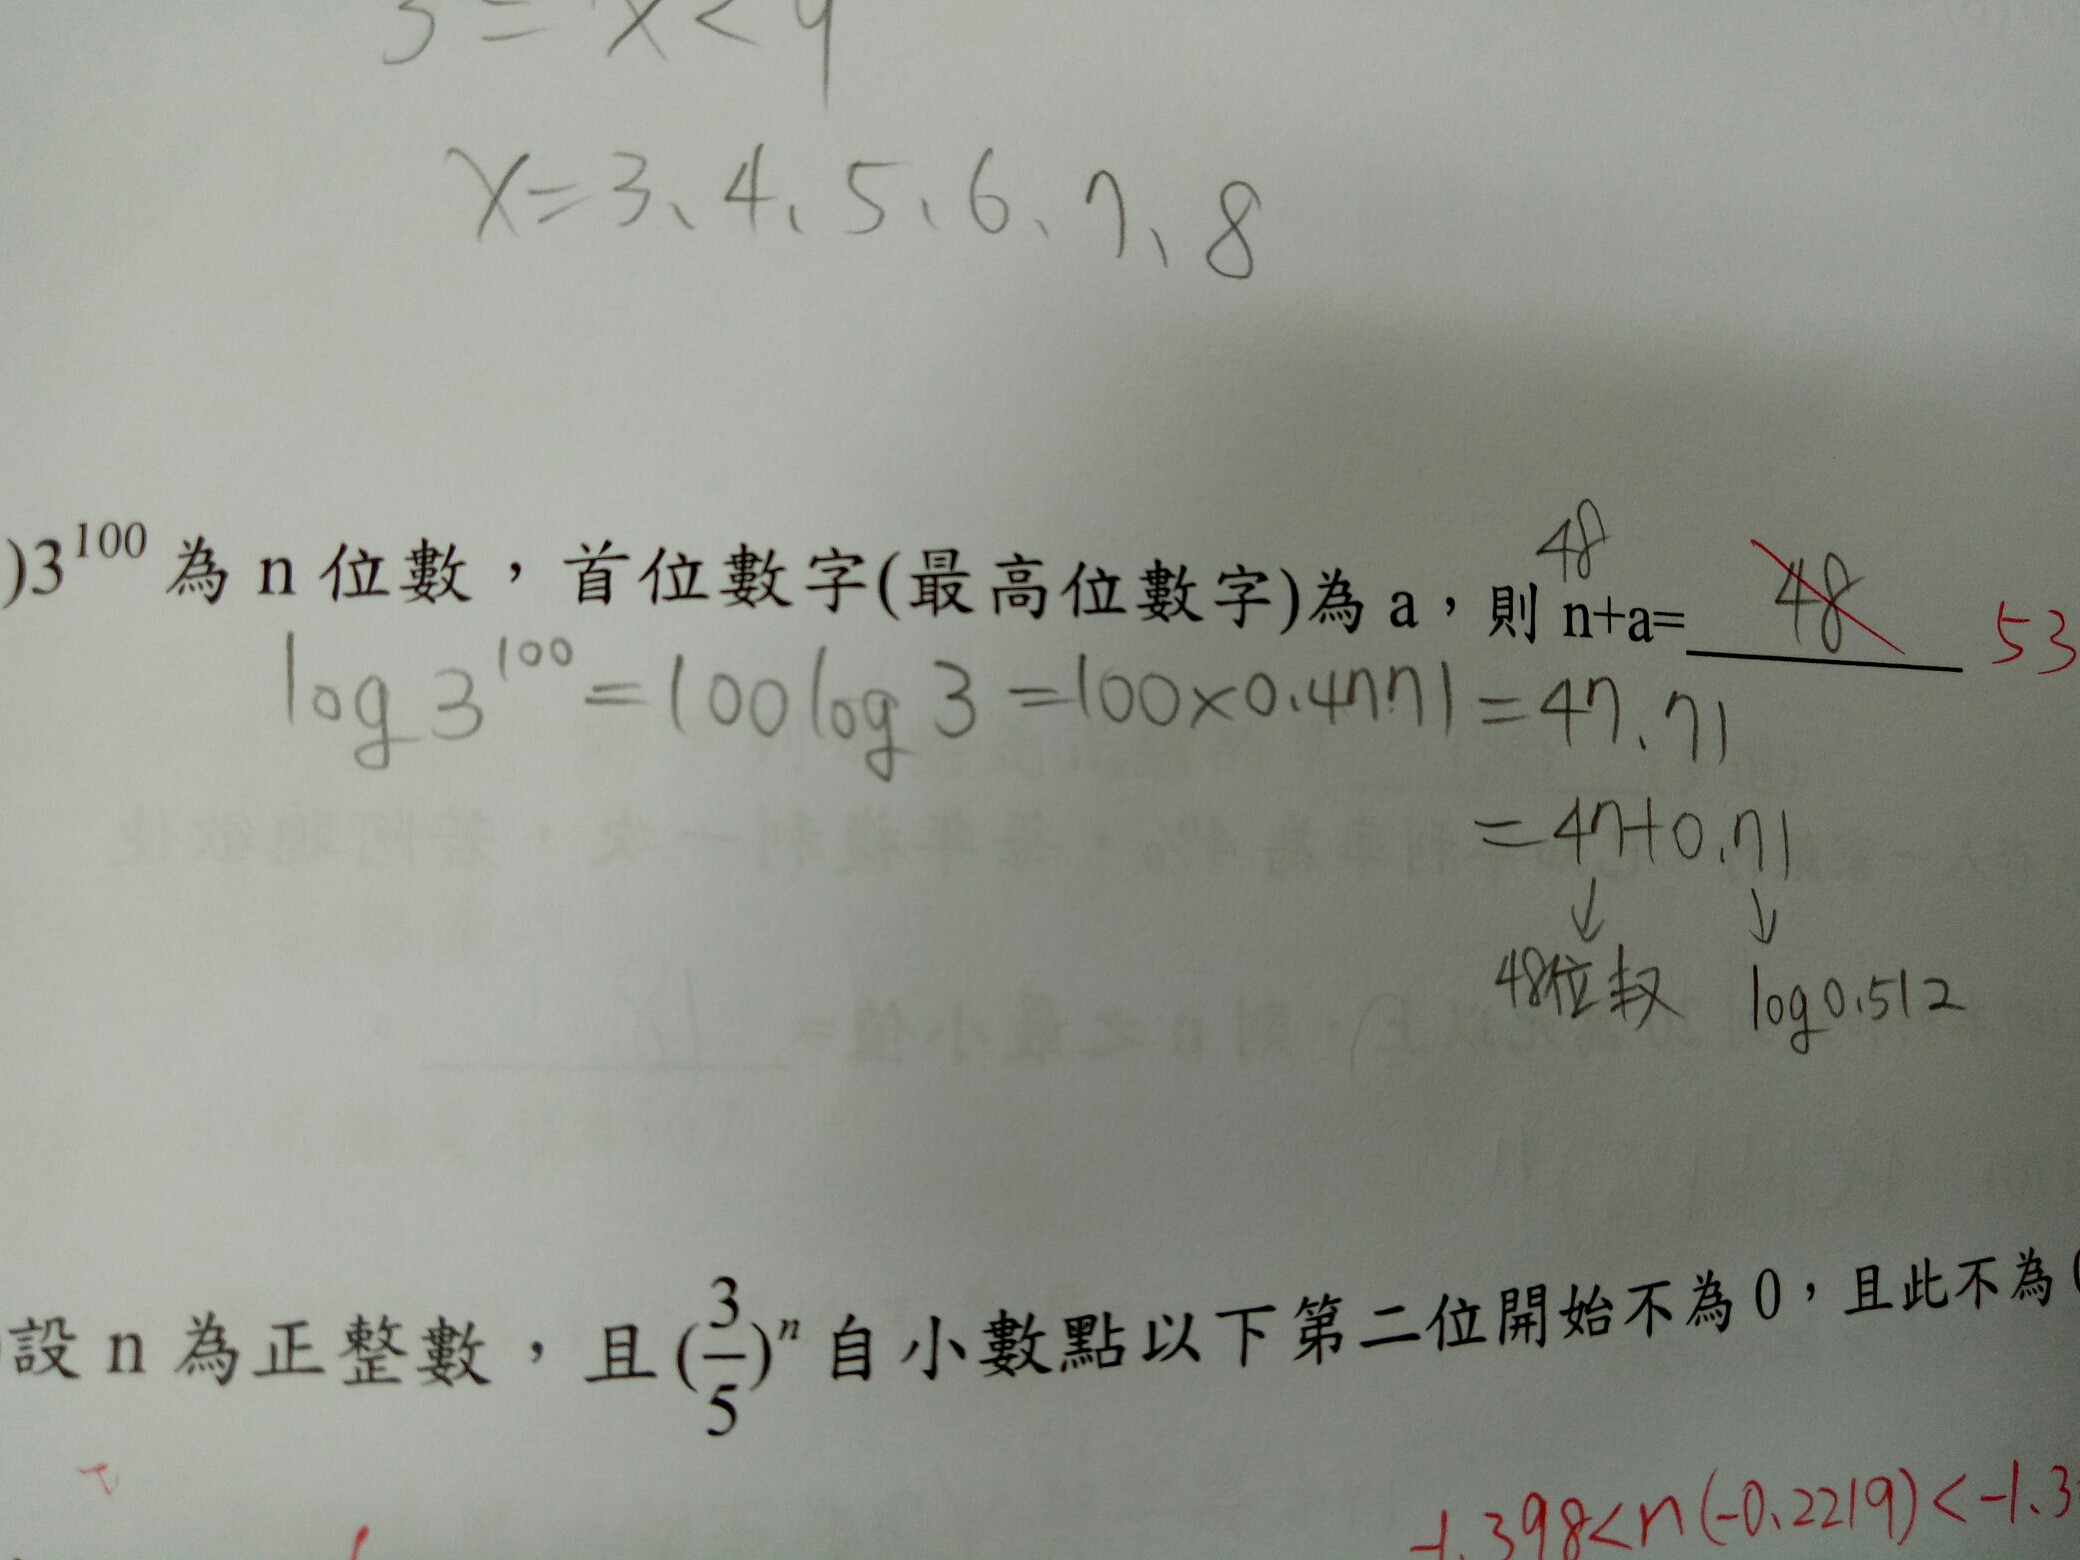 3 = x < 9
x = 3、4、5、6、7、8
)3^100 為 n 位數，首位數字(最高位數字)為 a，則 n+a= 48 53
48
log 3^100 = 100 log 3 = 100×0.4771 = 47.71
= 47+0.71
↓ ↓
48位数 log 0.512
設 n 為正整數，且 (3/5)^n 自小數點以下第二位開始不為 0，且此不為
-1.398<n(-0.2219)<-1.3